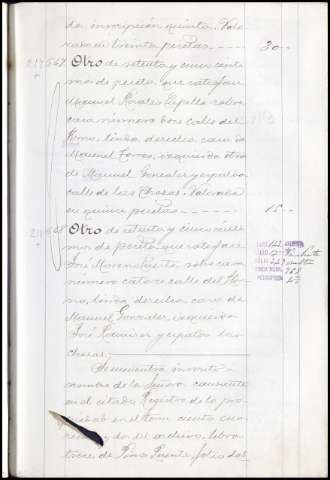 da inscripción quinta. Valo-
rado en treinta pesetas. 30
Otro de setenta y cinco centi-
mos de peseta que satisface
Manuel Rosales sobre
casa número doce calle del
Horno, linda derecha casa de
Manuel Torres, izquierda otra
de Miguel Gonzalez y espalda
calle de las Chozas. Valorada
en quince pesetas 15
Otro de setenta y cinco centi-
mos de peseta que satisface
José Moreno sobre casa
número catorce calle del Hor-
no, linda derecha casa de
Manuel Gonzalez, izquierda
José Ramirez y espalda las
chozas;
Se encuentra inscrito a
nombre de la Señora causante
en el citado Registro de la pro-
piedad en el tomo ciento cua-
renta y dos del archivo, libro
trece de Pino Puente, folio dos-